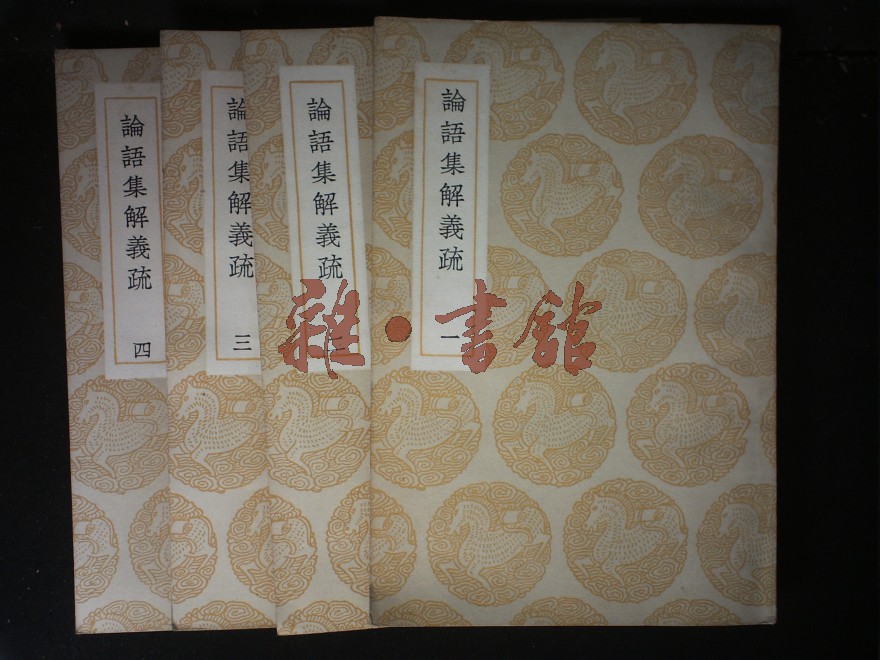 論語集解義疏
一
論語集解義疏
論語集解義疏
三
論語集解義疏
四
雜·書館